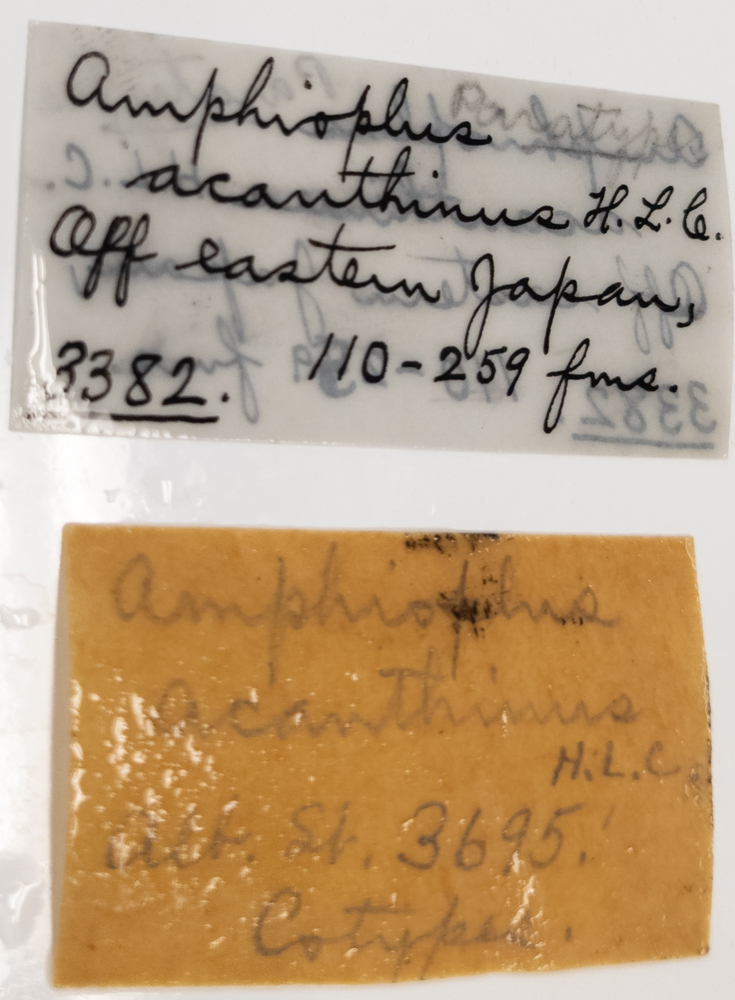 Amphioplus
Paratype
acanthinus H.L.C.
Off eastern Japan,
3382. 110-259 fms.
Amphioplus
acanthinus
H.L.C.
Alb. St. 3695.
Cotypes.